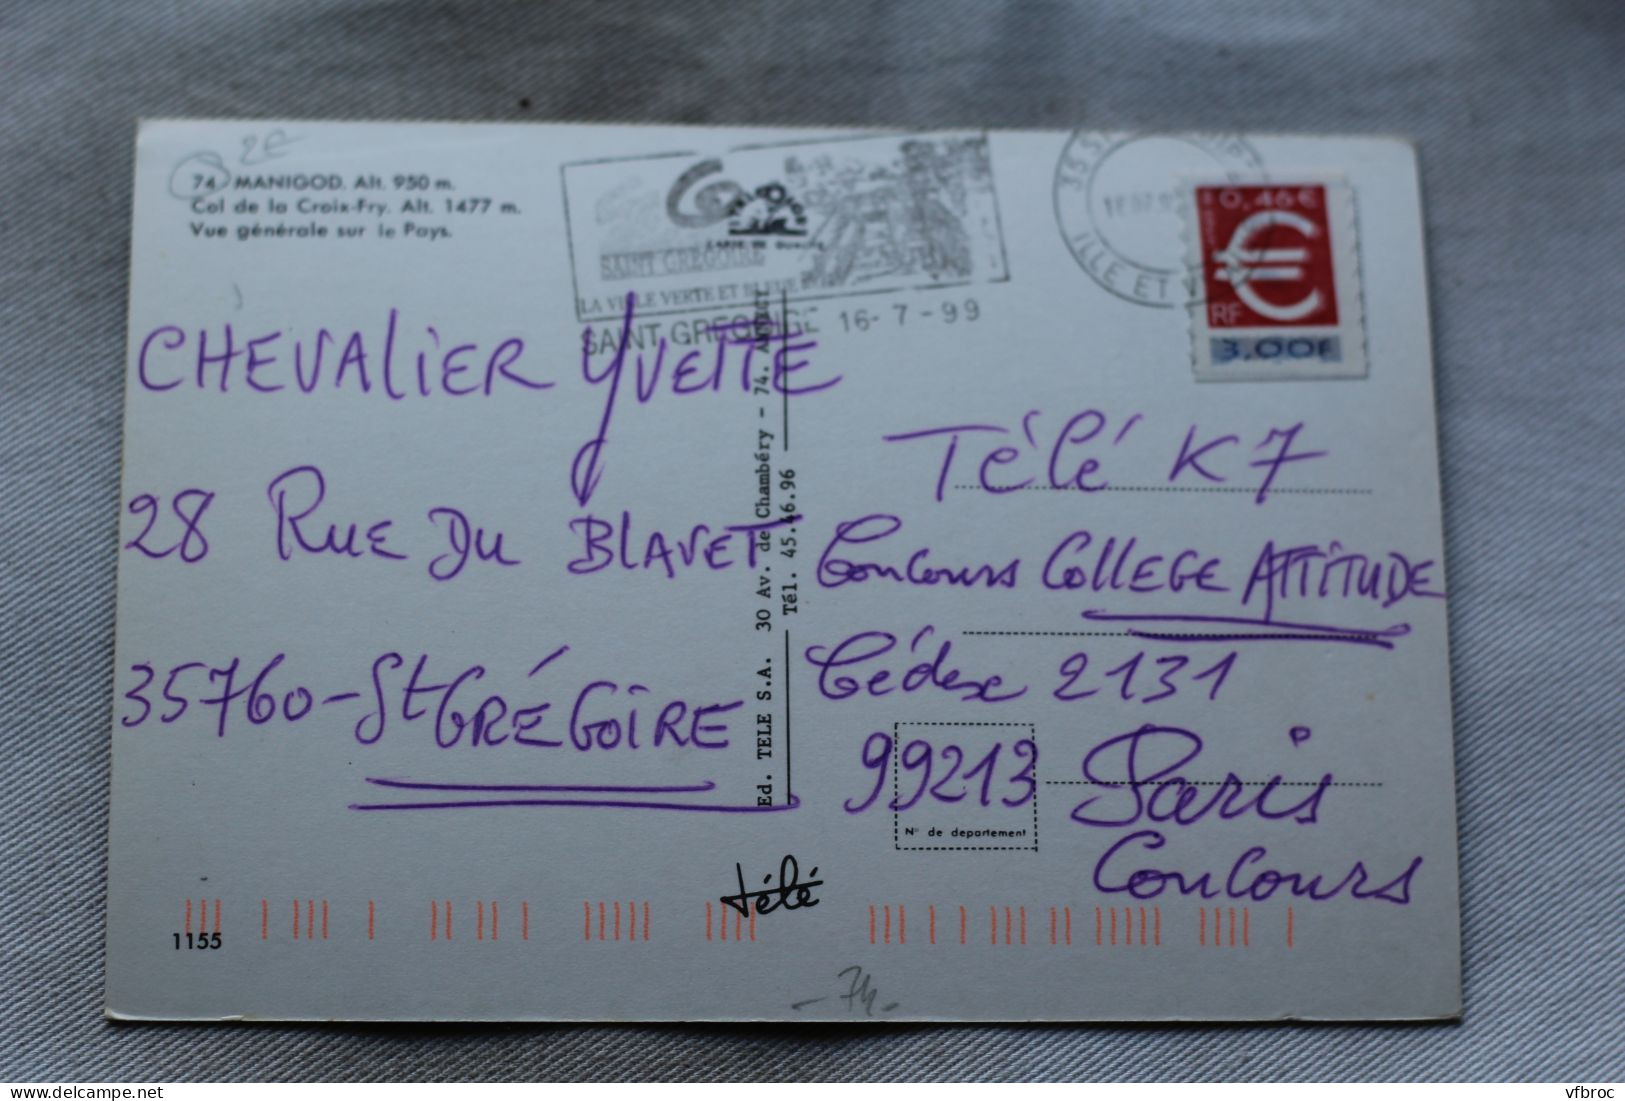 2€
74 MANIGOD. Alt. 950 m.
Col de la Croix-Fry. Alt. 1477 m.
Vue générale sur le Pays.
SAINT GRÉGOIRE
LA VILLE VERTE ET BLEUE
SAINT GREGOIRE 16-7-99
ILLE ET
0,46€
RF
3,00F
CHEVALIER YVETTE
28 RUE DU BLAVET
35760-St GRÉGOIRE
Ed. TELE S.A. 30 Av. de Chambéry - 74. ANNECY
Tél. 45.46.96
Télé K7
Concours COLLEGE ATTITUDE
Cédex 2131
99213 Paris
Concours
N° de departement
télé
1155
-74-
vfbroc